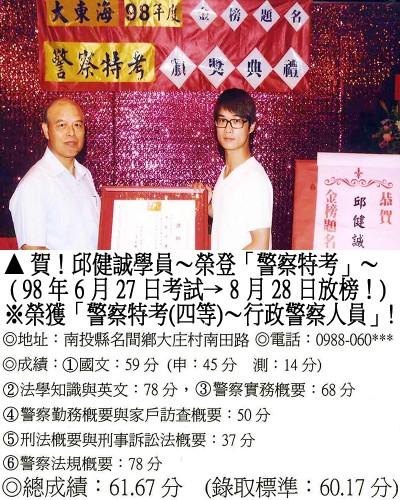 大東海 98年度 金榜題名
警察特考 頒獎典禮
恭賀
邱健誠
金榜題名
▲賀！邱健誠學員～榮登「警察特考」～
(98年6月27日考試→8月28日放榜！)
※榮獲「警察特考(四等)～行政警察人員」!
◎地址：南投縣名間鄉大庄村南田路 ◎電話：0988-060***
◎成績：①國文：59分 (申：45分 測：14分)
②法學知識與英文：78分，③警察實務概要：68分
④警察勤務概要與家戶訪查概要：50分
⑤刑法概要與刑事訴訟法概要：37分
⑥警察法規概要：78分
◎總成績：61.67分 (錄取標準：60.17分)